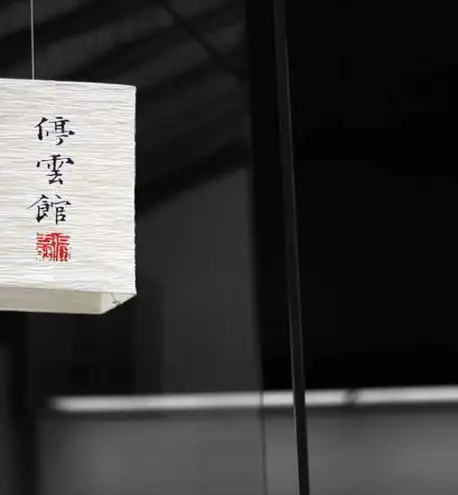 停
雲
館